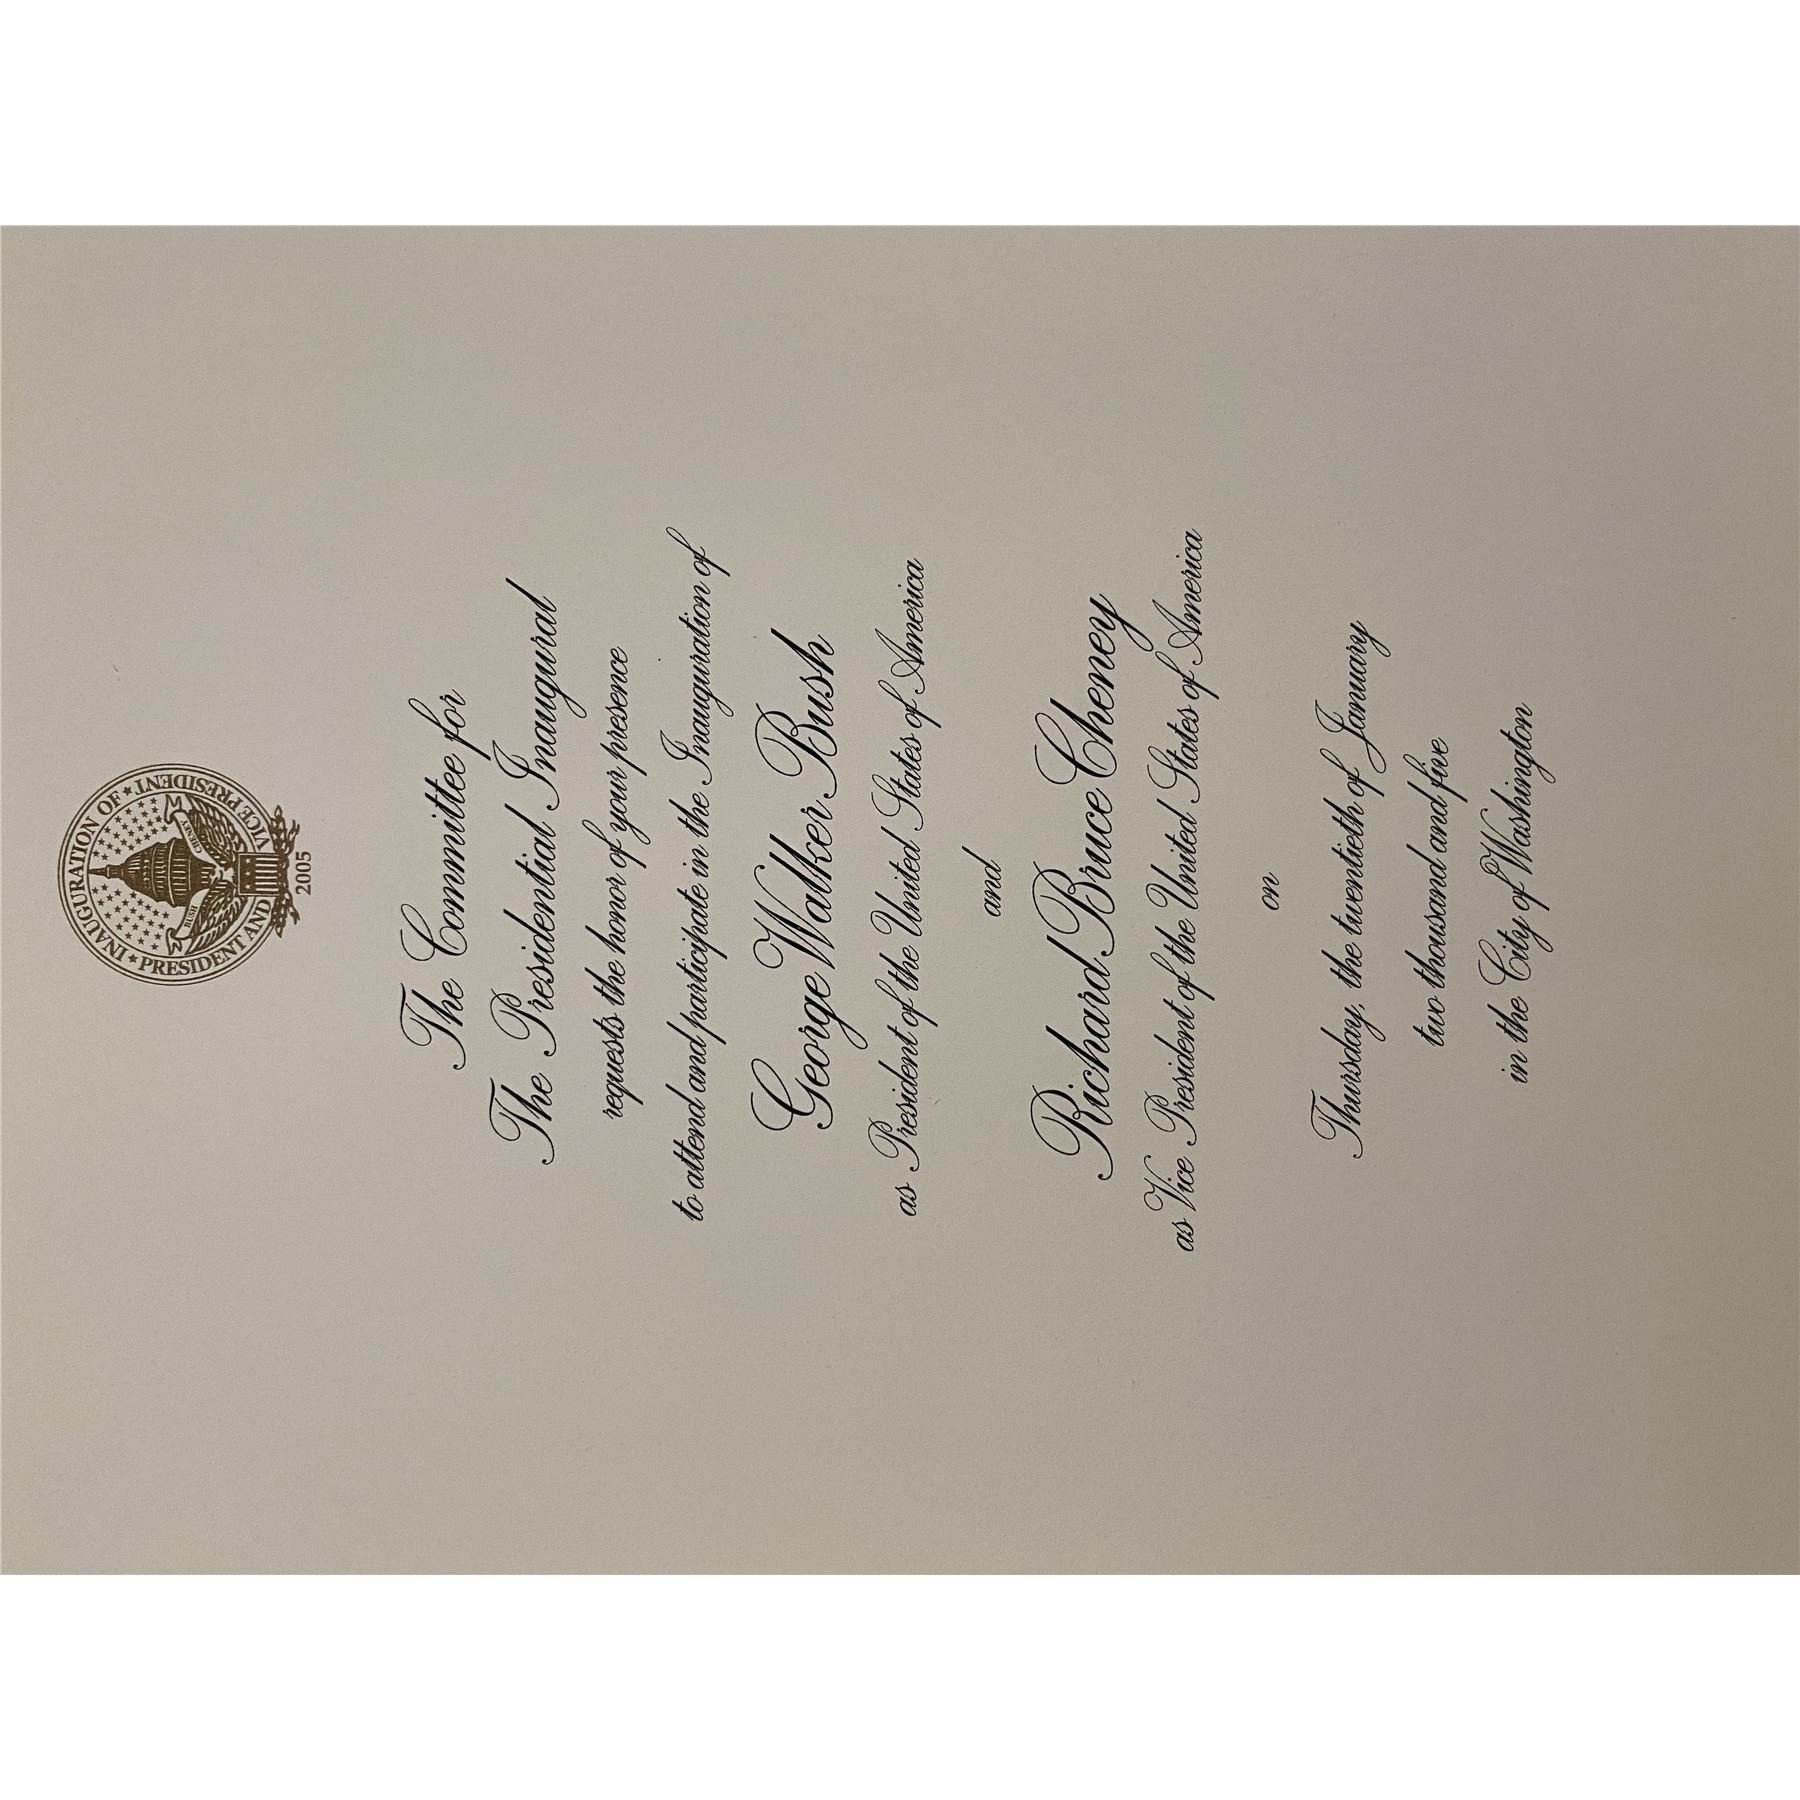 INAUGURATION OF ★ PRESIDENT AND VICE PRESIDENT ★
BUSH
CHENEY
2005
The Committee for
The Presidential Inaugural
requests the honor of your presence
to attend and participate in the Inauguration of
George Walker Bush
as President of the United States of America
and
Richard Bruce Cheney
as Vice President of the United States of America
on
Thursday, the twentieth of January
two thousand and five
in the City of Washington